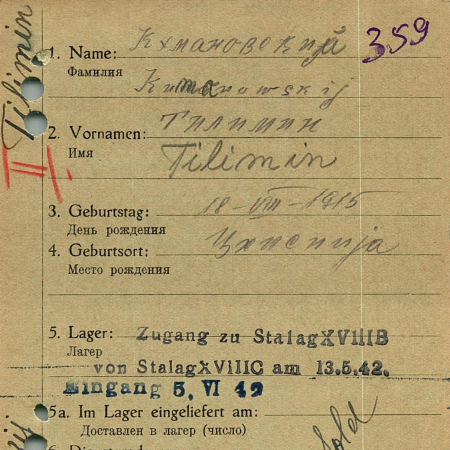 359
1. Name:
Фамилия
Tilimin
2. Vornamen: Тилимин
Имя
Tilimin
III.
3. Geburtstag: 18-VIII-1915
День рождения
4. Geburtsort:
Место рождения
5. Lager: Zugang zu Stalag XVIIIB
Лагерь
von Stalag XVIIIC am 13.5.42.
Eingang 5. VI 42
5a. Im Lager eingeliefert am:
Доставлен в лагерь (число)